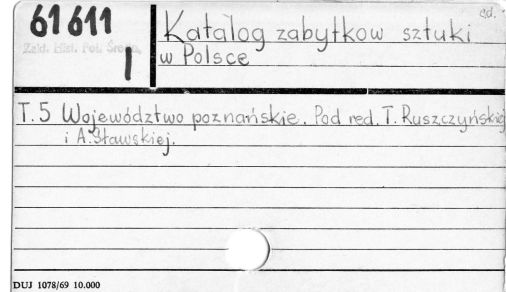 cd.
61611
Katalog zabytkow sztuki
Zakł. Hist. Pol. Średn.
I
w Polsce
T. 5 Województwo poznańskie. Pod red. T. Ruszczyńskiej
i A. Sławskiej.
DUJ 1078/69 10.000